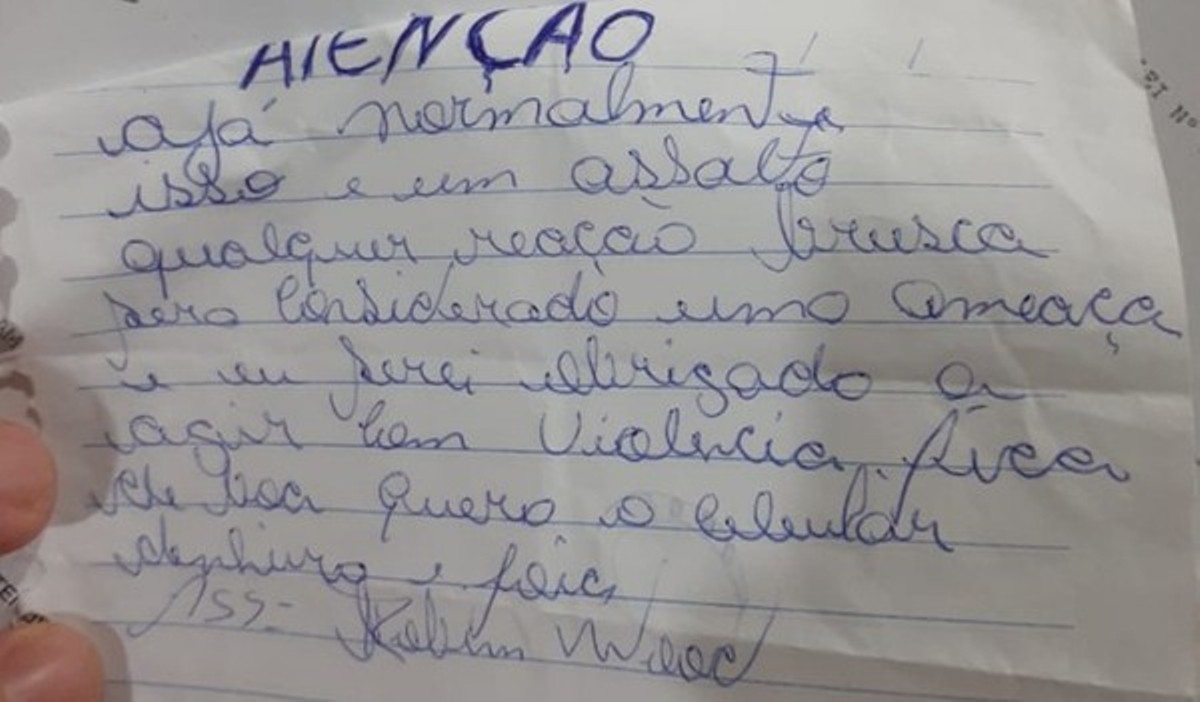 ATENÇÃO
ajá normalmente
isso e um assalto
qualquer reação brusca
sera considerado uma ameaça
e eu serei obrigado a
agir com violencia, fica
de boa quero o celular
dinhiro e joia
Ass- Robin Wood
EI Nº